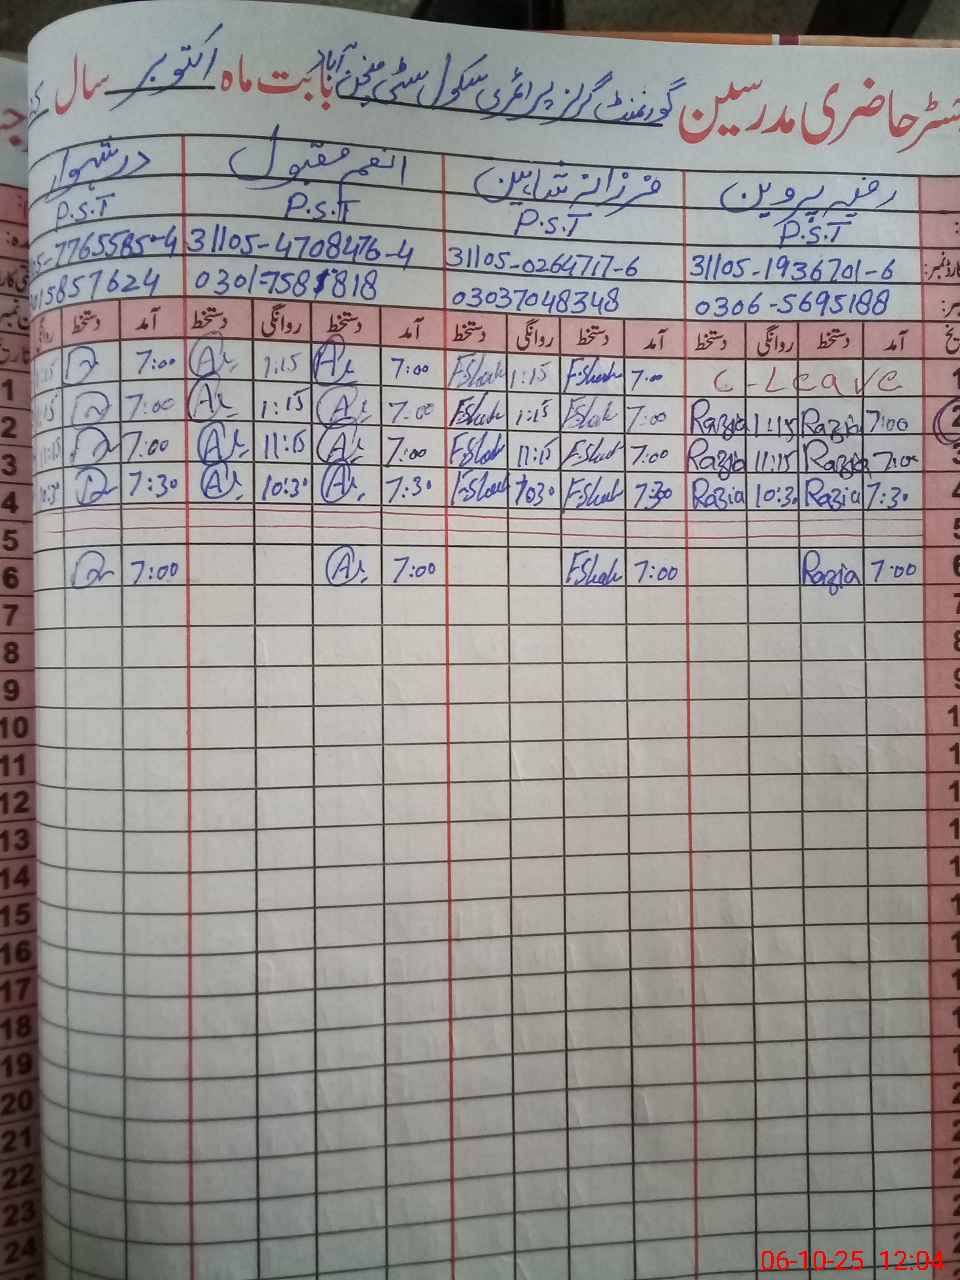 رجسٹر حاضری مدرسین گورنمنٹ گرلز پرائمری سکول سٹی منچن آباد بابت ماہ اکتوبر سال
رضیہ پروین فرزانہ شاہین انعم مقبول درشہوار
P.S.T P.S.T P.S.T P.S.T
31105-1936701-6 31105-0264717-6 31105-4708476-4 05-7765585-4
0306-5695188 03037048348 0301-7581818 015857624
آمد دستخط روانگی دستخط آمد دستخط روانگی دستخط آمد دستخط روانگی دستخط آمد دستخط
1 C-Leave 7:00 F.Shah 1:15 F.Shah 7:00 1:15 7:00
2 7:00 Razia 1:15 Razia 7:00 F.Shah 1:15 F.Shah 7:00 1:15 7:00 1:15
3 7:00 Razia 11:15 Razia 7:00 F.Shah 11:15 F.Shah 7:00 11:15 7:00 11:15
4 7:30 Razia 10:30 Razia 7:30 F.Shah 1030 F.Shah 7:30 10:30 7:30 10:30
5
6 7:00 Razia 7:00 F.Shah 7:00 7:00
7
8
9
10
11
12
13
14
15
16
17
18
19
20
21
22
23
24
06-10-25 12:04